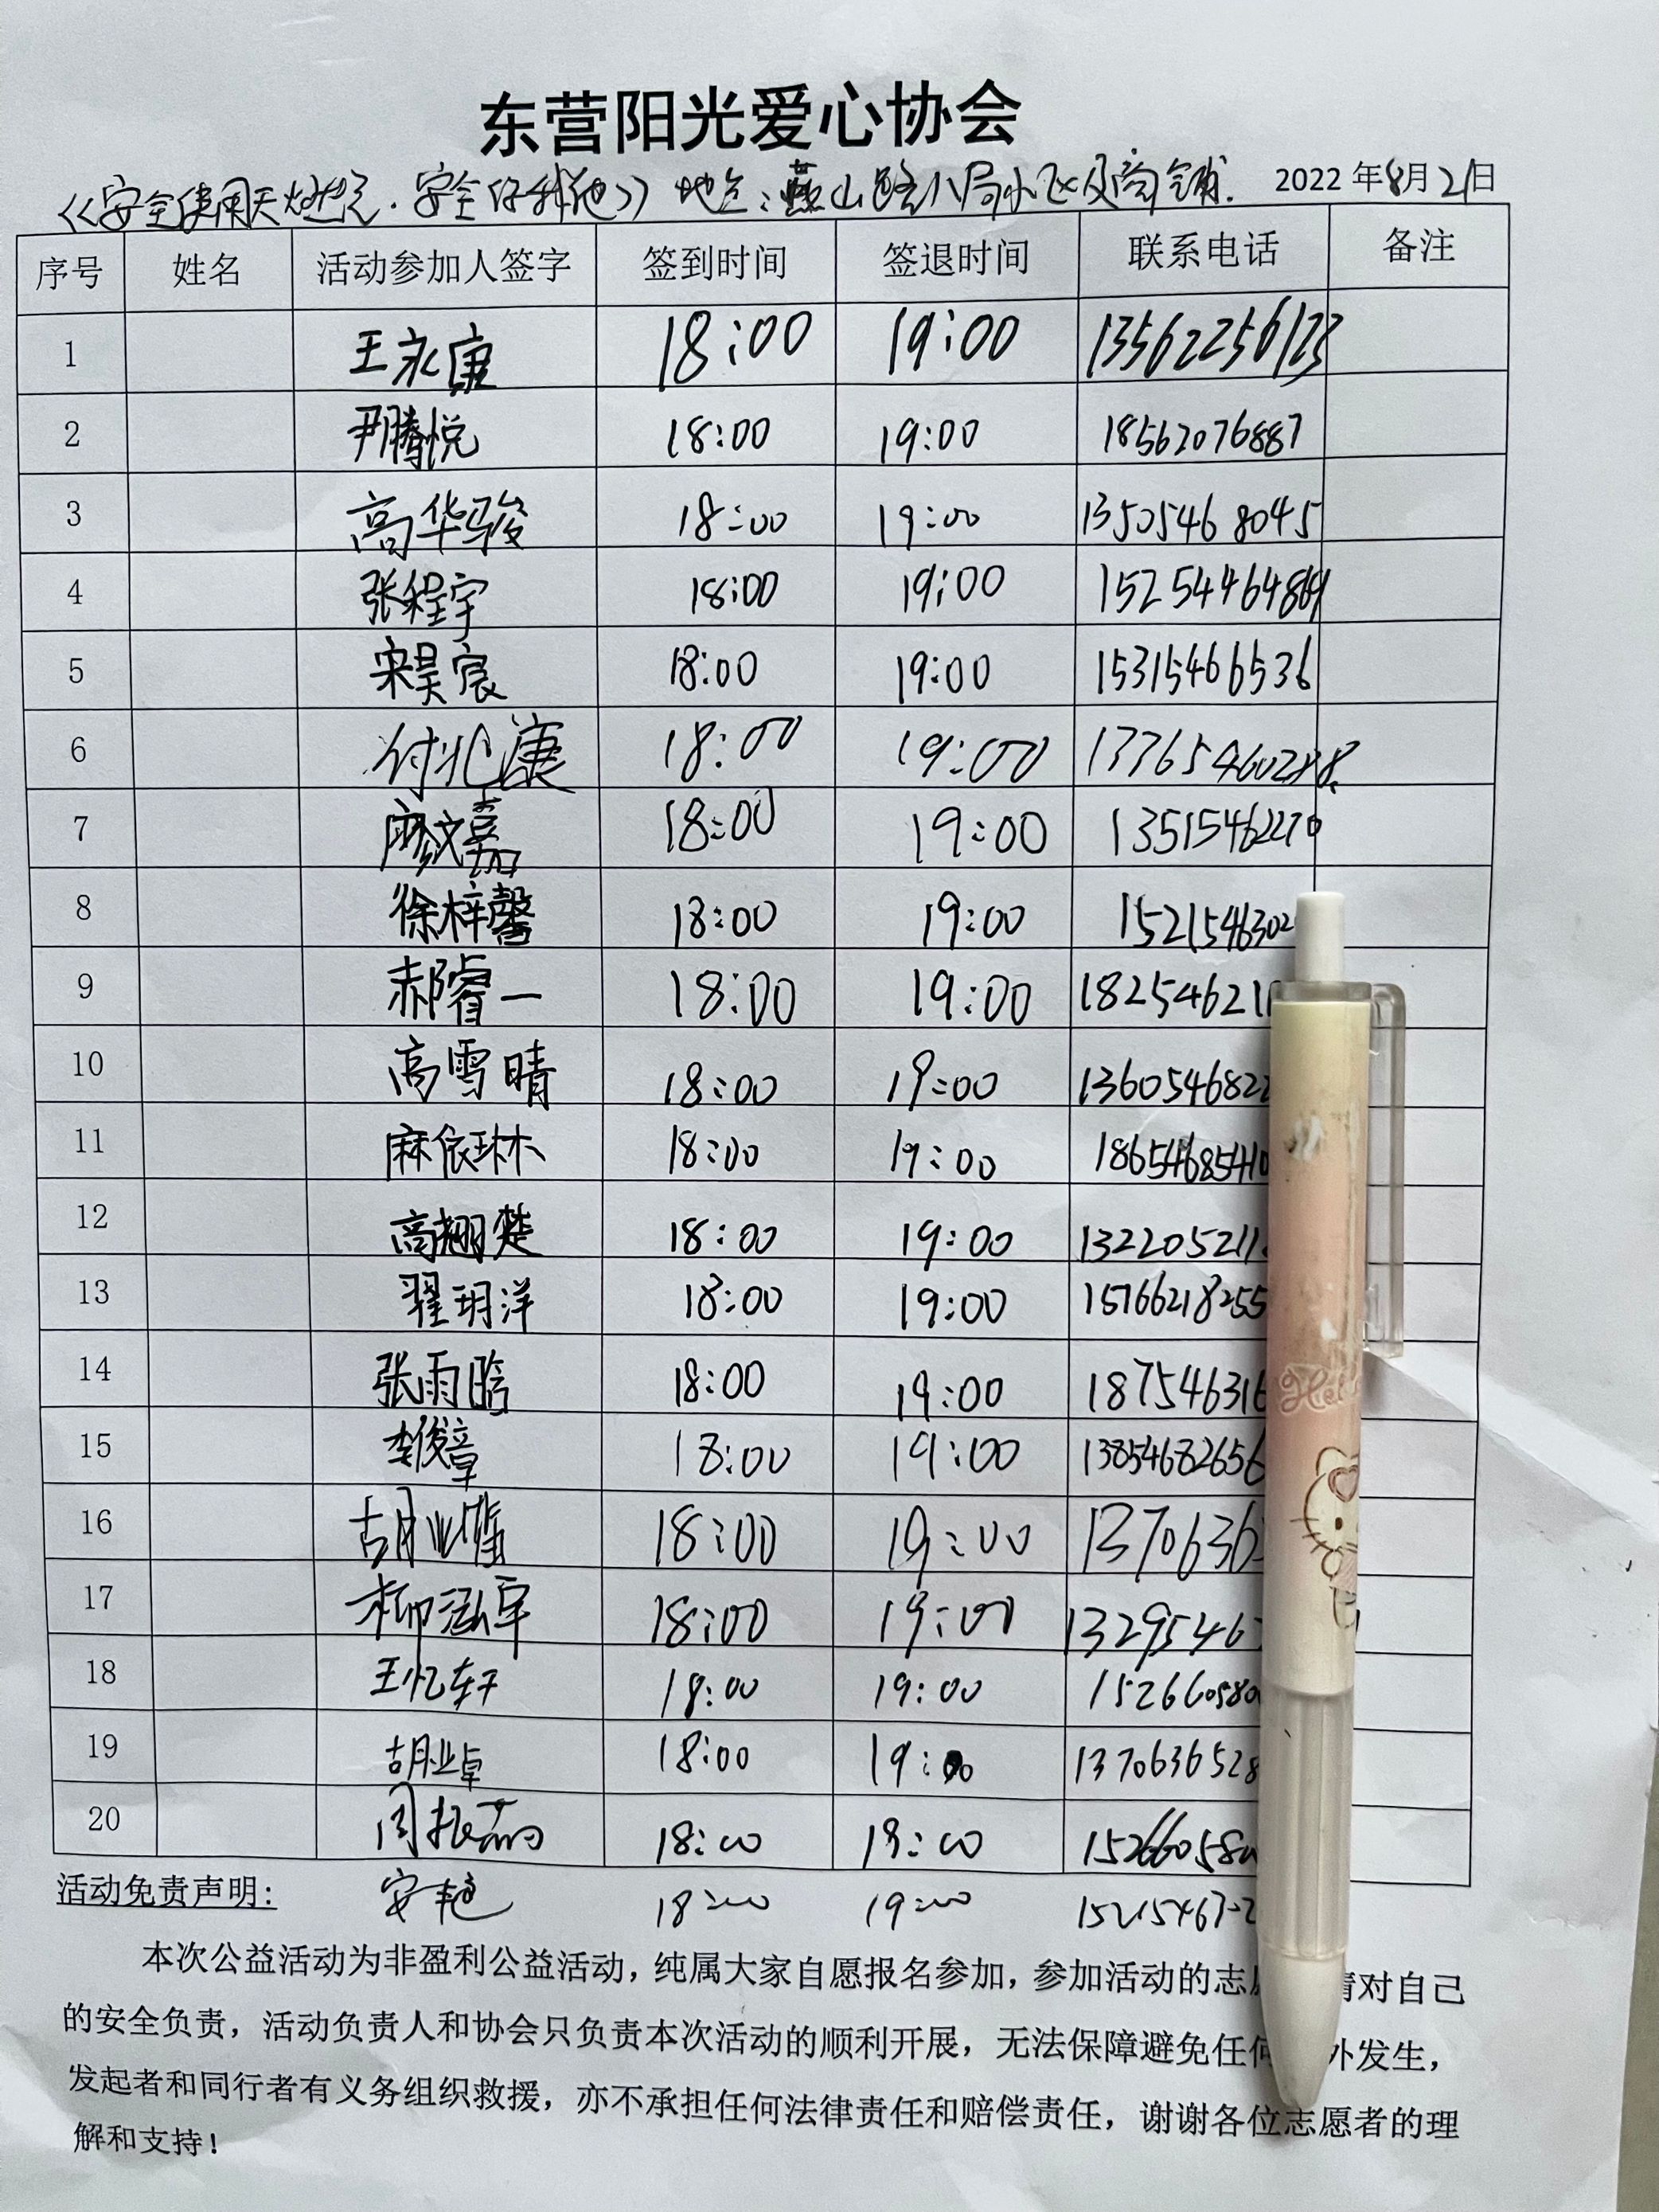 东营阳光爱心协会
《安全使用天燃气.安全你我他》 地点:燕山路八局小区及商铺. 2022年8月21日
序号 姓名 活动参加人签字 签到时间 签退时间 联系电话 备注
1 王永康 18:00 19:00 13562256123
2 尹腾悦 18:00 19:00 18562076887
3 高华骏 18:00 19:00 13505468045
4 张程宇 18:00 19:00
5 宋昊宸 18:00 19:00 15315466536
6 付兆康 18:00 19:00
7 廖文嘉 18:00 19:00 13515462270
8 徐梓馨 18:00 19:00 1521546302
9 郝睿一 18:00 19:00 18254621
10 高雪晴 18:00 19:00 1360546822
11 麻依琳 18:00 19:00 18654685410
12 高翘楚 18:00 19:00 132205211
13 翟玥洋 18:00 19:00 15766218255
14 张雨晗 18:00 19:00 187546316
15 李俊章 18:00 19:00 13854682656
16 胡业 18:00 19:00 1370636
17 柳泓宇 18:00 19:00 13295467
18 王忆轩 18:00 19:00 152660580
19 胡业卓 18:00 19:00 1370636528
20 周振 18:00 19:00 152660580
活动免责声明: 安艳 18:00 19:00
本次公益活动为非盈利公益活动，纯属大家自愿报名参加，参加活动的志愿 请对自己
的安全负责，活动负责人和协会只负责本次活动的顺利开展，无法保障避免任何 外发生，
发起者和同行者有义务组织救援，亦不承担任何法律责任和赔偿责任，谢谢各位志愿者的理
解和支持！
Hel